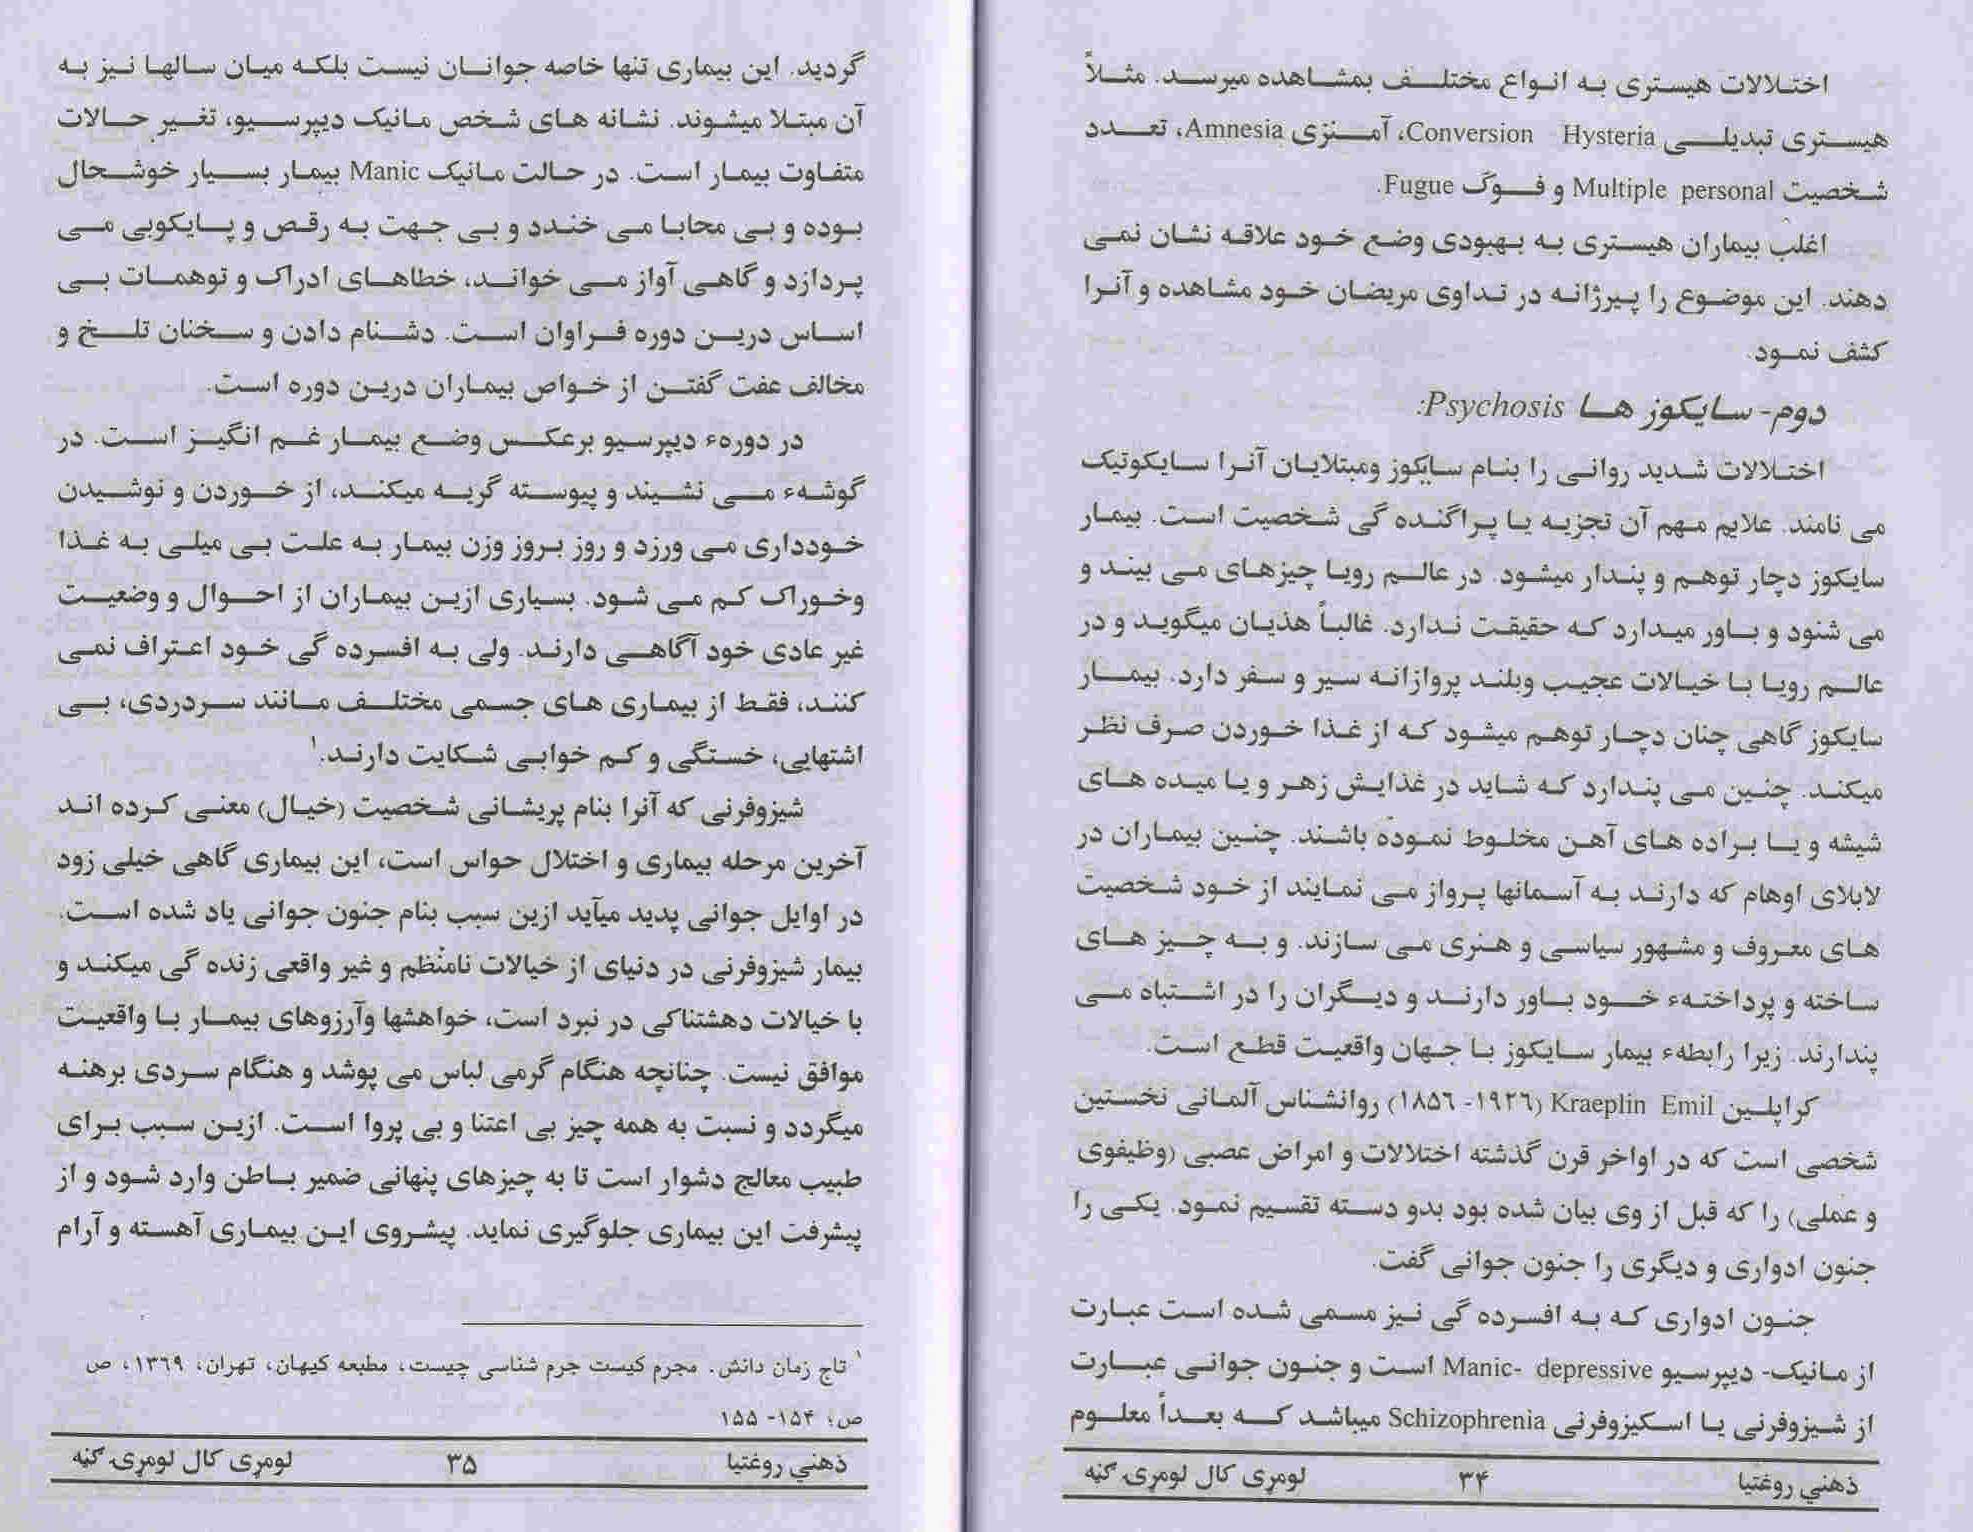 اختلالات هیستری به انواع مختلف بمشاهده میرسد. مثلاً
هیستری تبدیلی Conversion Hysteria، آمنزی Amnesia، تعدد
شخصیت Multiple personal و فوگ Fugue.
اغلب بیماران هیستری به بهبودی وضع خود علاقه نشان نمی
دهند. این موضوع را پیرژانه در تداوی مریضان خود مشاهده و آنرا
کشف نمود.
دوم- سایکوز ها Psychosis:
اختلالات شدید روانی را بنام سایکوز ومبتلایان آنرا سایکوتیک
می نامند. علایم مهم آن تجزیه یا پراگنده گی شخصیت است. بیمار
سایکوز دچار توهم و پندار میشود. در عالم رویا چیزهای می بیند و
می شنود و باور میدارد که حقیقت ندارد. غالباً هذیان میگوید و در
عالم رویا با خیالات عجیب وبلند پروازانه سیر و سفر دارد. بیمار
سایکوز گاهی چنان دچار توهم میشود که از غذا خوردن صرف نظر
میکند. چنین می پندارد که شاید در غذایش زهر و یا میده های
شیشه و یا براده های آهن مخلوط نموده باشند. چنین بیماران در
لابلای اوهام که دارند به آسمانها پرواز می نمایند از خود شخصیت
های معروف و مشهور سیاسی و هنری می سازند. و به چیز های
ساخته و پرداختهء خود باور دارند و دیگران را در اشتباه می
پندارند. زیرا رابطهء بیمار سایکوز با جهان واقعیت قطع است.
کراپلین Kraeplin Emil (۱۹۲۶- ۱۸۵۶) روانشناس آلمانی نخستین
شخصی است که در اواخر قرن گذشته اختلالات و امراض عصبی (وظیفوی
و عملی) را که قبل از وی بیان شده بود بدو دسته تقسیم نمود. یکی را
جنون ادواری و دیگری را جنون جوانی گفت.
جنون ادواری که به افسرده گی نیز مسمی شده است عبارت
از مانیک- دیپرسیو Manic- depressive است و جنون جوانی عبارت
از شیزوفرنی یا اسکیزوفرنی Schizophrenia میباشد که بعداً معلوم
ذهني روغتیا ۳۴ لومړی کال لومړۍ ګڼه
گردید. این بیماری تنها خاصه جوانان نیست بلکه میان سالها نیز به
آن مبتلا میشوند. نشانه های شخص مانیک دیپرسیو، تغیر حالات
متفاوت بیمار است. در حالت مانیک Manic بیمار بسیار خوشحال
بوده و بی محابا می خندد و بی جهت به رقص و پایکوبی می
پردازد و گاهی آواز می خواند، خطاهای ادراک و توهمات بی
اساس درین دوره فراوان است. دشنام دادن و سخنان تلخ و
مخالف عفت گفتن از خواص بیماران درین دوره است.
در دورهء دیپرسیو برعکس وضع بیمار غم انگیز است. در
گوشهء می نشیند و پیوسته گریه میکند، از خوردن و نوشیدن
خودداری می ورزد و روز بروز وزن بیمار به علت بی میلی به غذا
وخوراک کم می شود. بسیاری ازین بیماران از احوال و وضعیت
غیر عادی خود آگاهی دارند. ولی به افسرده گی خود اعتراف نمی
کنند، فقط از بیماری های جسمی مختلف مانند سردردی، بی
اشتهایی، خستگی و کم خوابی شکایت دارند.۱
شیزوفرنی که آنرا بنام پریشانی شخصیت (خیال) معنی کرده اند
آخرین مرحله بیماری و اختلال حواس است، این بیماری گاهی خیلی زود
در اوایل جوانی پدید میآید ازین سبب بنام جنون جوانی یاد شده است.
بیمار شیزوفرنی در دنیای از خیالات نامنظم و غیر واقعی زنده گی میکند و
با خیالات دهشتناکی در نبرد است، خواهشها وآرزوهای بیمار با واقعیت
موافق نیست. چنانچه هنگام گرمی لباس می پوشد و هنگام سردی برهنه
میگردد و نسبت به همه چیز بی اعتنا و بی پروا است. ازین سبب برای
طبیب معالج دشوار است تا به چیزهای پنهانی ضمیر باطن وارد شود و از
پیشرفت این بیماری جلوگیری نماید. پیشروی این بیماری آهسته و آرام
۱ تاج زمان دانش. مجرم کیست جرم شناسی چیست، مطبعه کیهان، تهران، ۱۳۶۹، ص
ص؛ ۱۵۴- ۱۵۵
ذهني روغتیا ۳۵ لومړی کال لومړۍ ګڼه